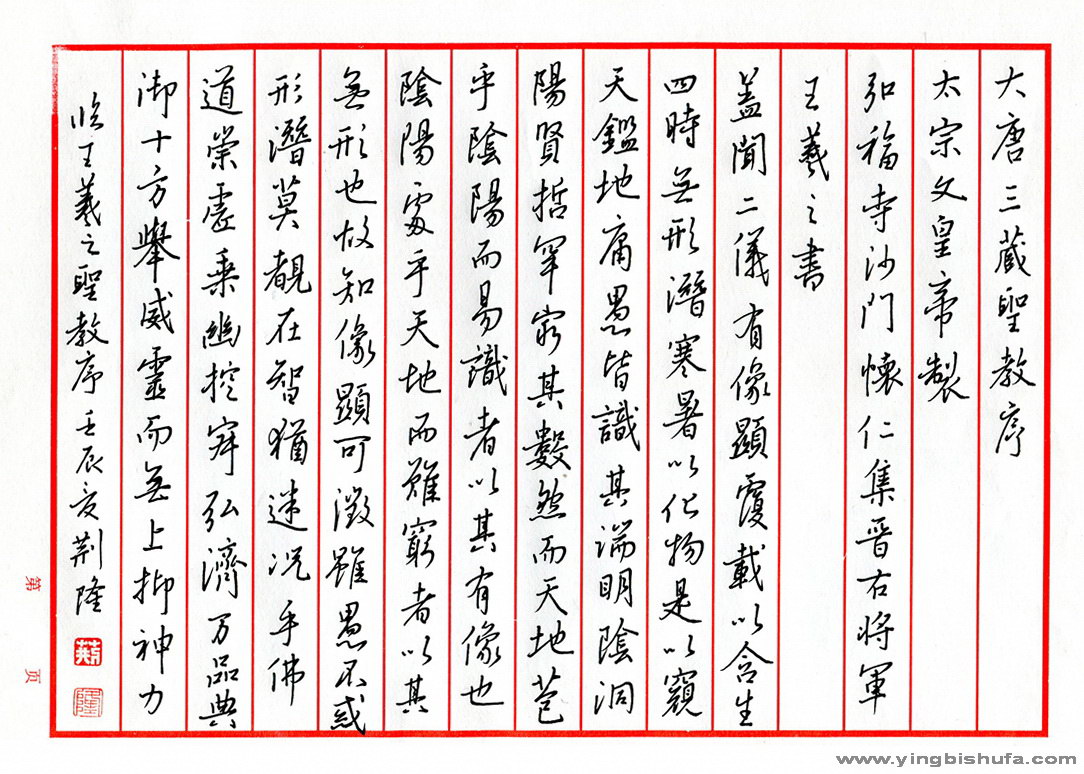 大唐三藏聖教序
太宗文皇帝製
弘福寺沙門懷仁集晉右將軍
王羲之書
蓋聞二儀有像顯覆載以含生
四時無形潛寒暑以化物是以窺
天鑑地庸愚皆識其端明陰洞
陽賢哲罕窮其數然而天地苞
乎陰陽而易識者以其有像也
陰陽處乎天地而難窮者以其
無形也故知像顯可徵雖愚不惑
形潛莫覩在智猶迷況乎佛
道崇虛乘幽控寂弘濟万品典
御十方舉威靈而無上抑神力
臨王羲之聖教序壬辰夏荊隆
荊
隆
第 页
www.yingbishufa.com